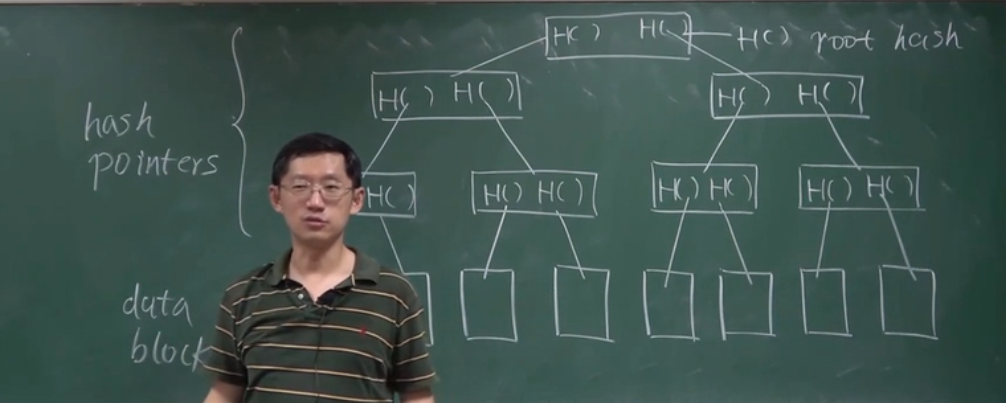 H( ) H( ) H( ) root hash
H( ) H( ) H( ) H( )
hash
pointers
H( ) H( ) H( ) H( ) H( ) H( ) H( )
data
block